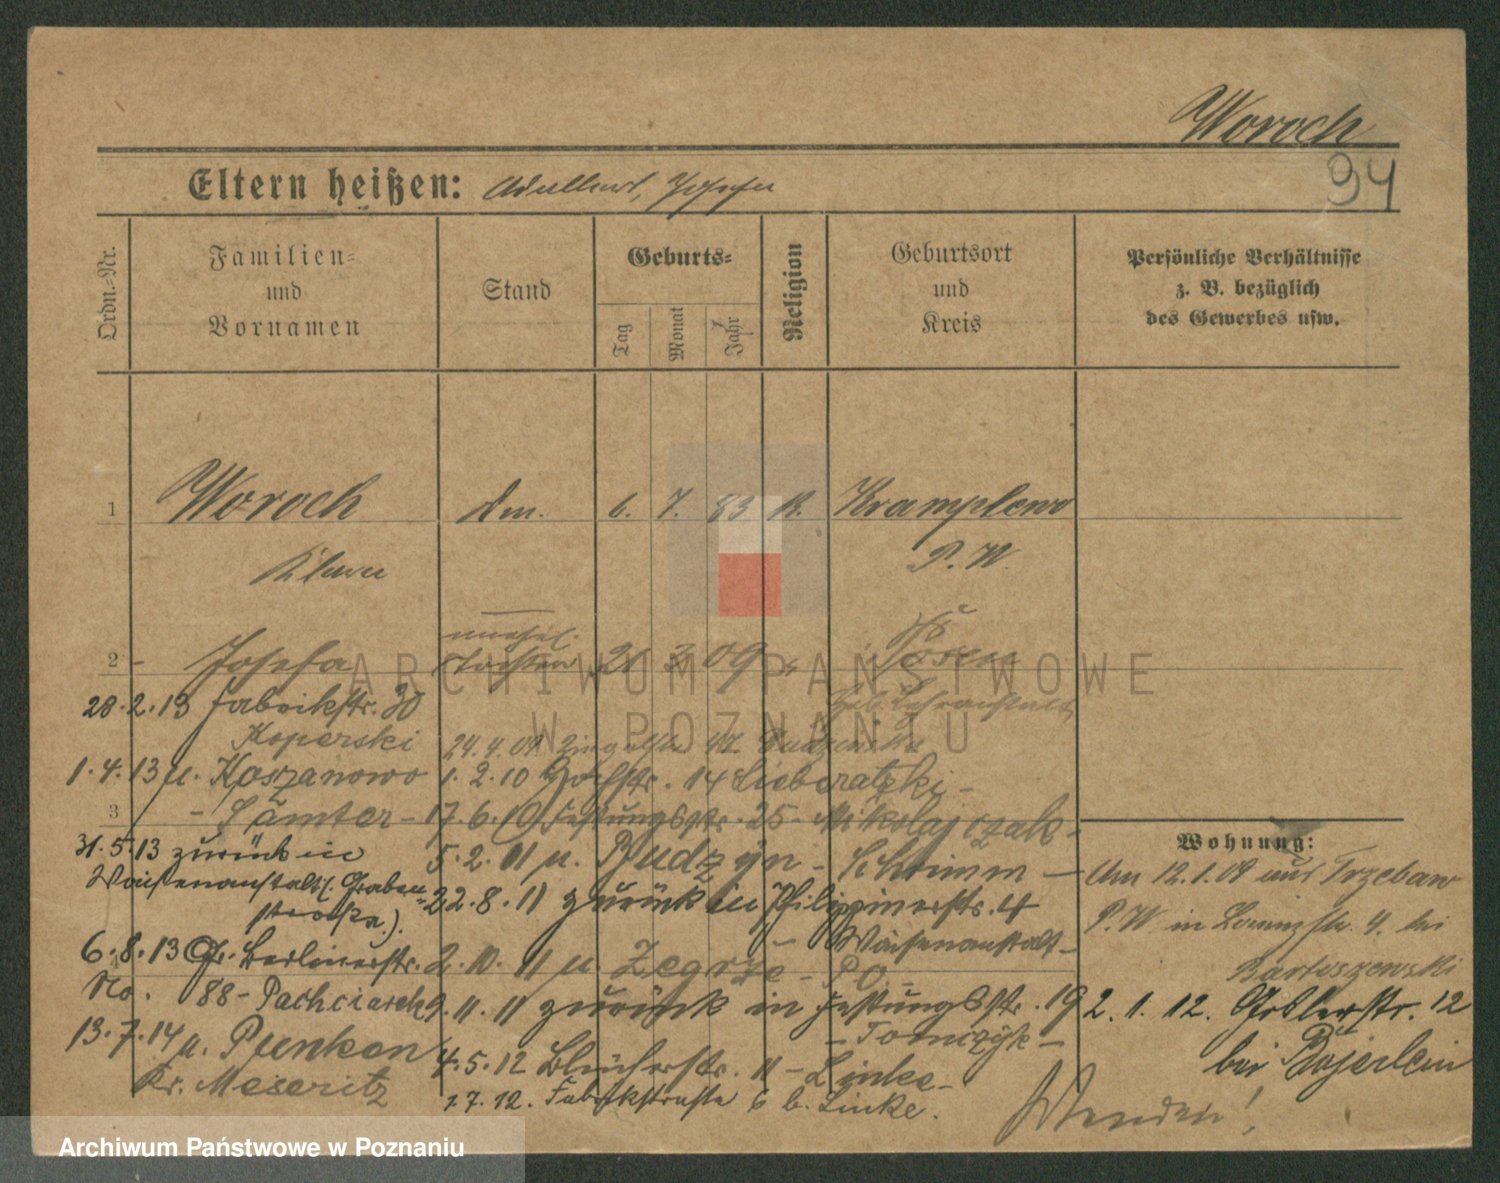 Woroch
94
Eltern heißen: Adalbert, Josefa
Ordn.-Nr.
Familien-
und
Vornamen
Stand
Geburts-
Tag
Monat
Jahr
Religion
Geburtsort
und
Kreis
Persönliche Verhältnisse
z. B. bezüglich
des Gewerbes usw.
1 Woroch 6. 7. 83 K. Kramplewo
P. W.
2 - Josefa 3 09 Posen
28.2.13 Fabrikstr. 30
Koperski
24.4.09
1.4.13 u. Koszanowo
1.2.10 14
- Samter -
3
17.6.10 Festungsstr. 25 - Mikolajczak -
31.5.13 zurück in
Waisenanstalt (Graben-
straße).
5.2.11 u. Budzyn - Schrimm -
22.8.11 zurück in Philippinerstr. 4
Waisenanstalt -
6.8.13 Gr. Berlinerstr.
No. 88 - Pachciarek
4
2.10.11 u. Zegrze - PO. -
9.11.11 zurück in Festungsstr. 19
- Tomczyk -
13.7.14 u. Punken
Kr. Meseritz
4.5.12 Blücherstr. 11 - Linke -
1.7.12. Fabrikstraße 6 b. Linke.
Wohnung:
Am 12.1.09 aus Trzebaw
P. W. in 4. bei
Bartoszewski
2.1.12. 12
bei
Wenden!
ARCHIWUM PAŃSTWOWE
W POZNANIU
Archiwum Państwowe w Poznaniu